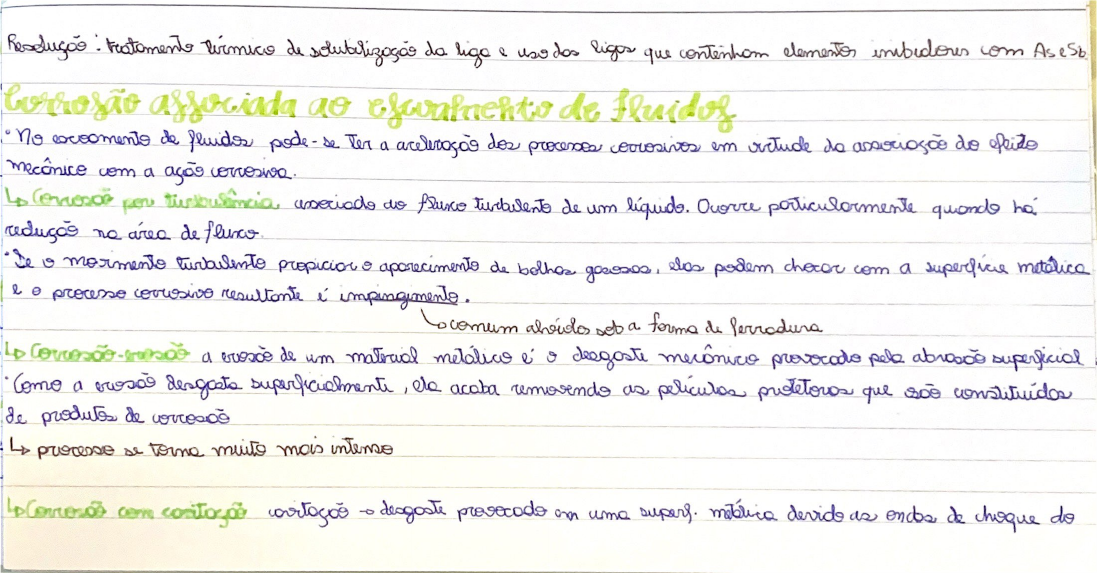 Resolução: tratamento térmico de solubilização da liga e uso das ligas que contenham elementos inibidores com As e Sb
Corrosão associada ao escoamento de fluidos
• No escoamento de fluidos pode-se ter a aceleração dos processos corrosivos em virtude da associação do efeito
mecânico com a ação corrosiva.
↳ Corrosão por turbulência associado ao fluxo turbulento de um líquido. Ocorre particularmente quando há
redução na área de fluxo.
• Se o movimento turbulento propiciar o aparecimento de bolhas gasosas, elas podem chocar com a superfície metálica
e o processo corrosivo resultante é impingimento.
↳ comum alvéolos sob a forma de ferradura
↳ Corrosão-erosão a erosão de um material metálico é o desgaste mecânico provocado pela abrasão superficial.
• Como a erosão desgasta superficialmente, ela acaba removendo as películas protetoras que são constituídas
de produtos de corrosão
↳ processo se torna muito mais intenso
↳ Corrosão com cavitação cavitação → desgaste provocado em uma superf. metálica devido as ondas de choque do